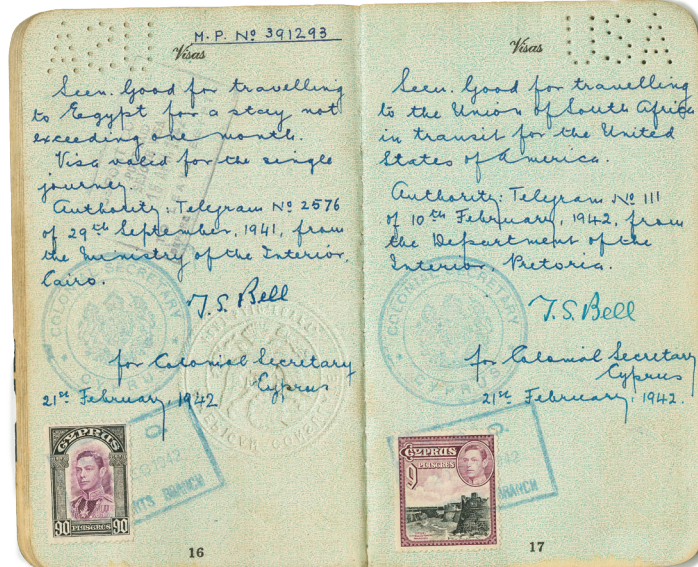 M.P. Nº 391293
Visas
Seen. Good for travelling
to Egypt for a stay not
exceeding one month.
Visa valid for the single
journey.
Authority: Telegram Nº 2576
of 29th September, 1941, from
the Ministry of the Interior,
Cairo.
COLONIAL SECRETARY
CYPRUS
T.S. Bell
for Colonial Secretary
Cyprus
21st February, 1942
CYPRUS
90 PIASTRES 90
1942
BRANCH
16
USA
Visas
Seen. Good for travelling
to the Union of South Africa
in transit for the United
States of America.
Authority: Telegram Nº 111
of 10th February, 1942, from
the Department of the
Interior, Pretoria.
COLONIAL SECRETARY
CYPRUS
T.S. Bell
for Colonial Secretary
Cyprus
21st February, 1942.
CYPRUS
9 PIASTRES
BRANCH
17